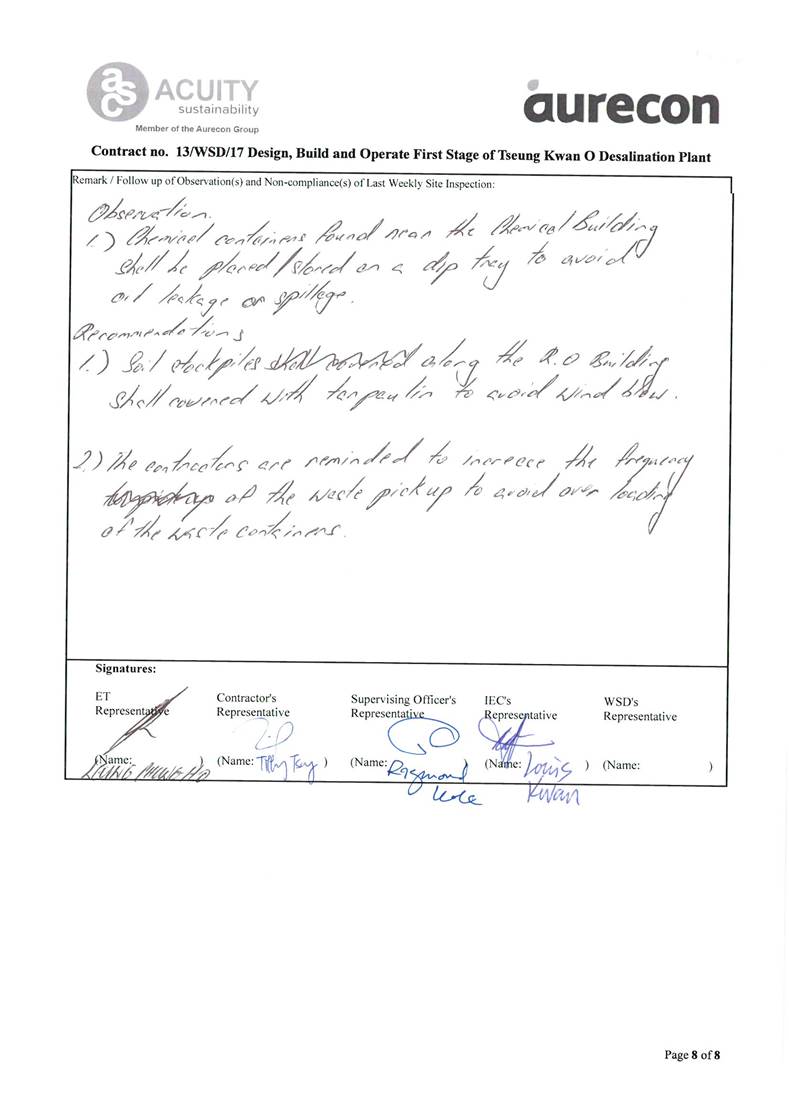 asc ACUITY
sustainability
Member of the Aurecon Group
aurecon
Contract no. 13/WSD/17 Design, Build and Operate First Stage of Tseung Kwan O Desalination Plant
Remark / Follow up of Observation(s) and Non-compliance(s) of Last Weekly Site Inspection:
Observation.
1.) Chemical containers found near the Chemical Building
shall be placed/stored on a dip tray to avoid
oil leakage or spillage.
Recommendations
1.) Soil stockpiles shall covered along the R.O Building
shall covered with tarpaulin to avoid wind blow.
2.) The contractors are reminded to increece the frequency
of the waste pick up to avoid over loading
of the waste containers.
Signatures:
ET
Representative
Contractor's
Representative
Supervising Officer's
Representative
IEC's
Representative
WSD's
Representative
(Name: )
(Name: )
(Name: Raymond
(Name: Louis
Kwan )
(Name: )
Page 8 of 8